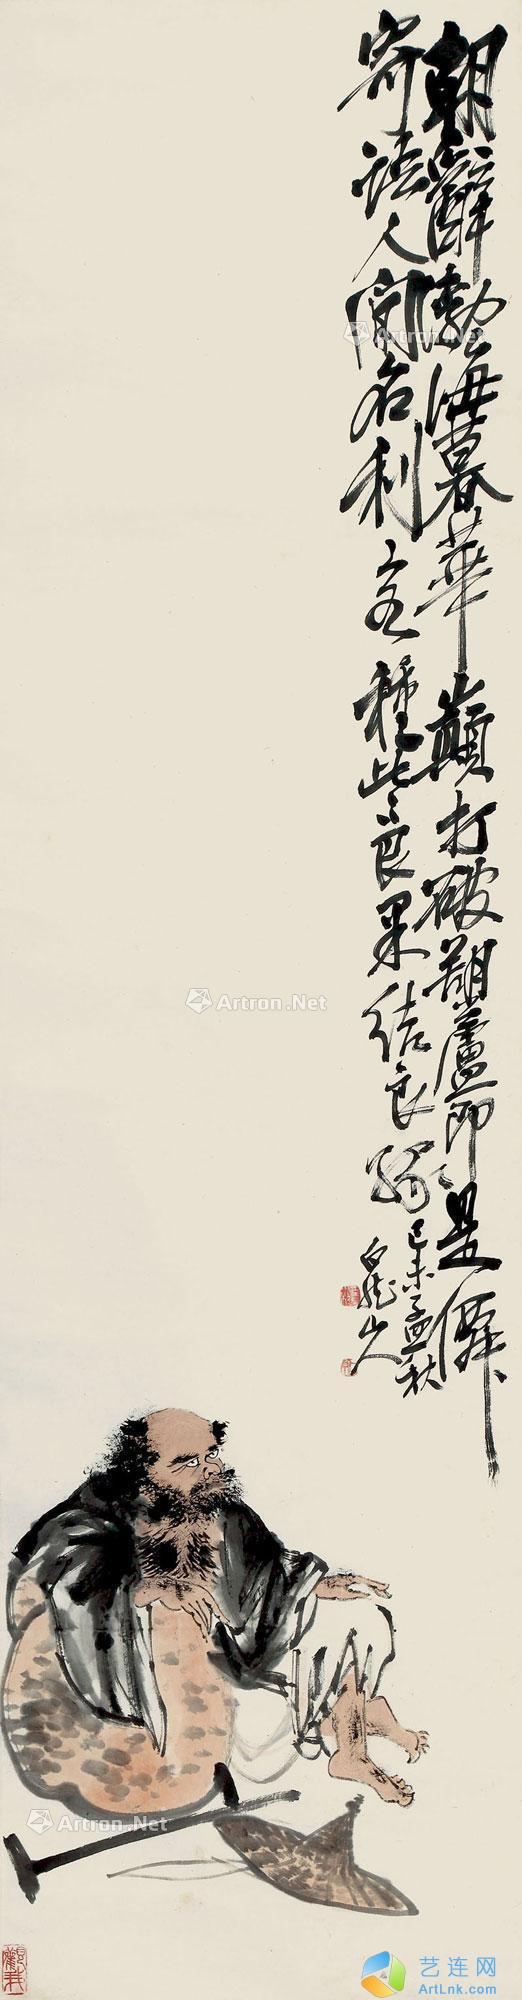 朝辭渤海暮華巔打破葫蘆即是僊
寄語人間名利客種些良果結良緣
己未孟秋
白龍山人
Artron.Net
Artron.Net
Artron.Net
Artron.Net
艺连网
ArtLnk.com